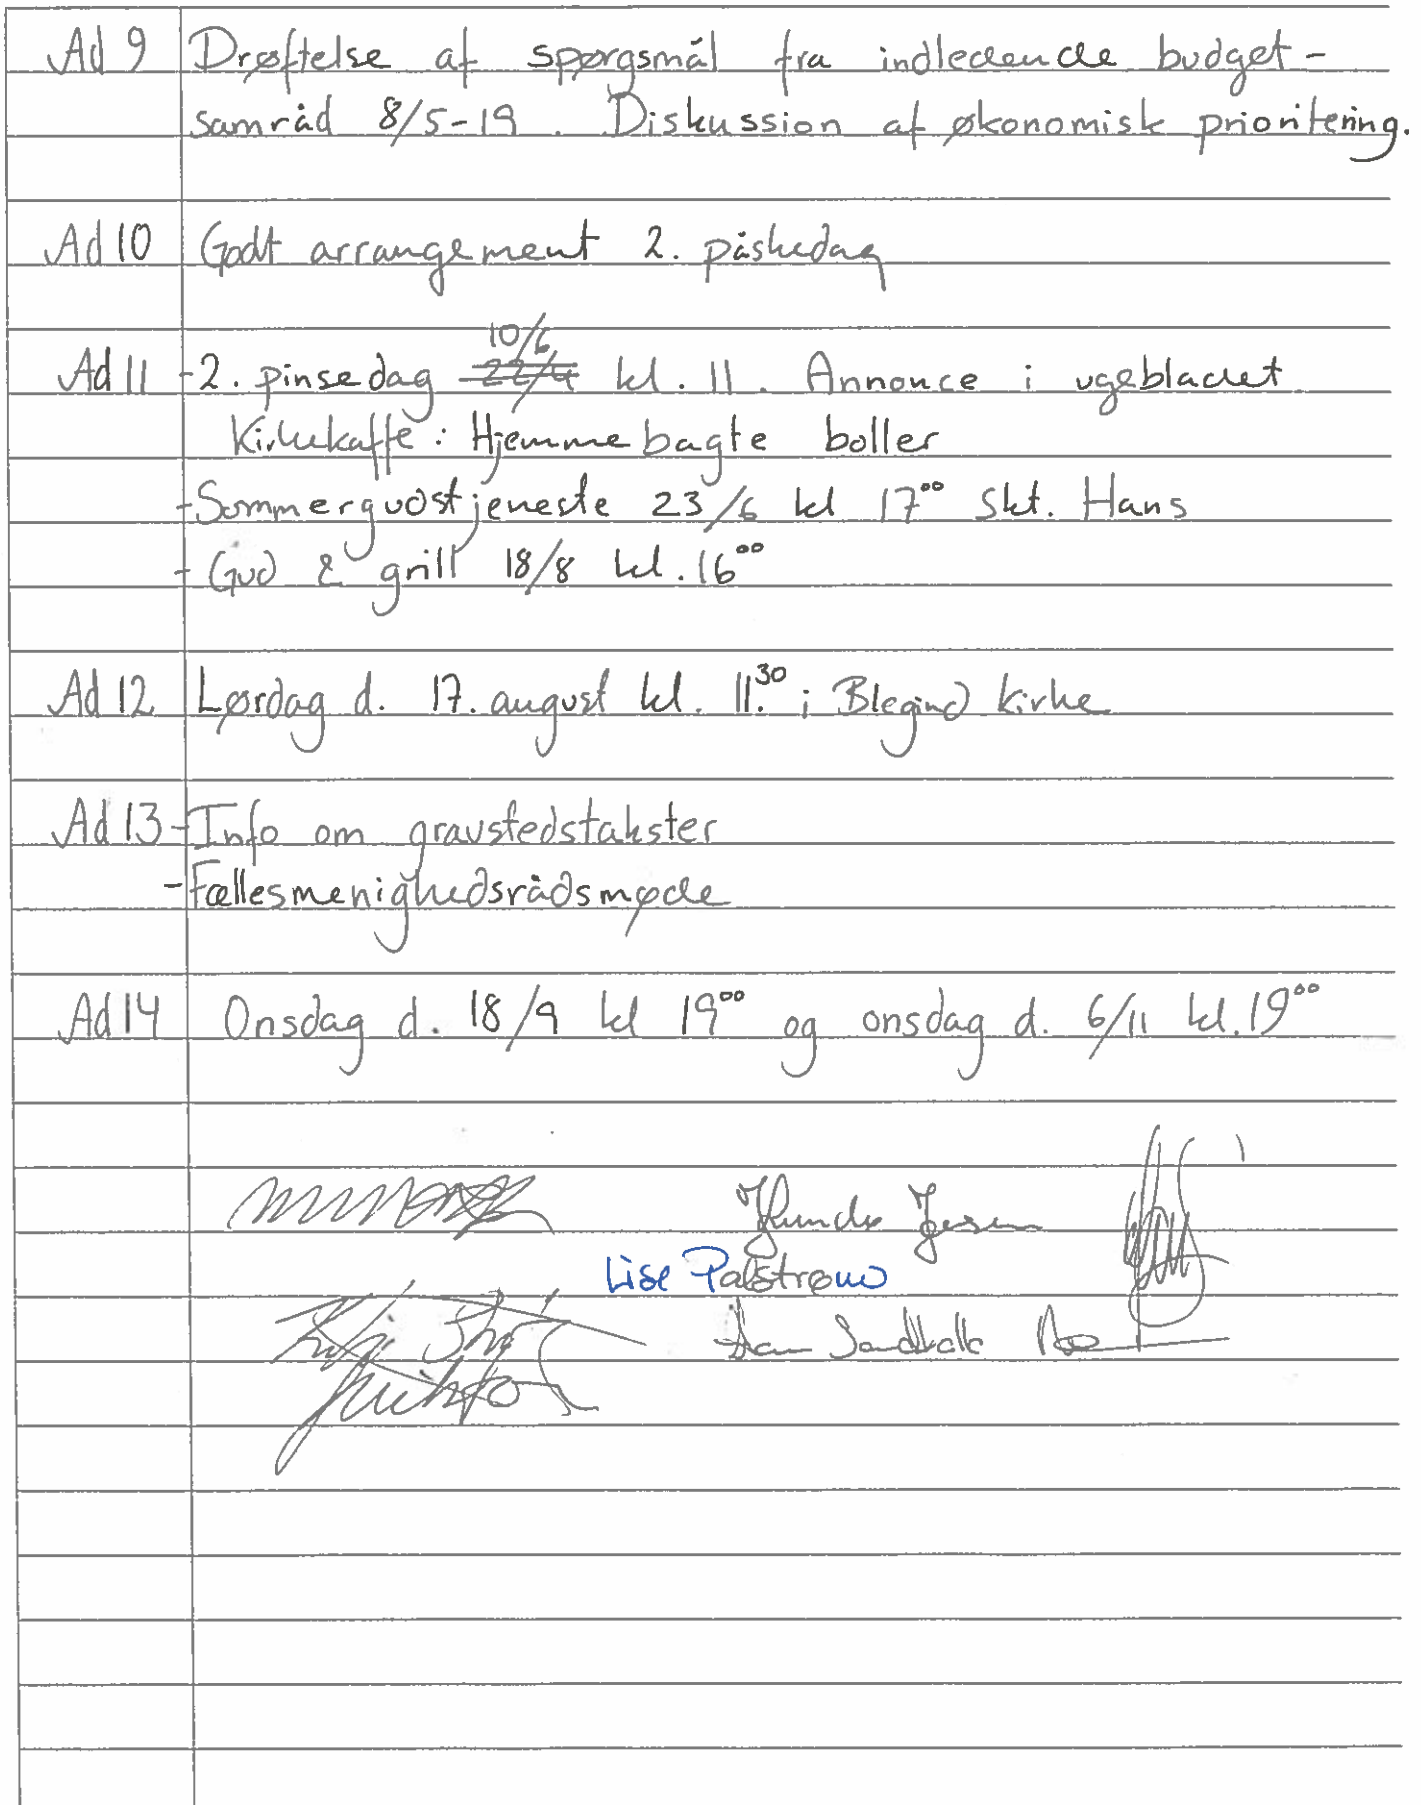 Ad 9 Drøftelse af spørgsmål fra indledende budget-
samråd 8/5-19. Diskussion af økonomisk prioritering.
Ad 10 Godt arrangement 2. påskedag
10/6
Ad 11 - 2. pinsedag 22/4 kl. 11. Annonce i ugebladet
Kirkekaffe: Hjemmebagte boller
- Sommergudstjeneste 23/6 kl 17⁰⁰ Skt. Hans
- Gud & grill 18/8 kl. 16⁰⁰
Ad 12 Lørdag d. 17. august kl. 11.³⁰ i Blegind kirke
Ad 13 - Info om gravstedstakster
- Fællesmenighedsrådsmøde
Ad 14 Onsdag d. 18/9 kl 19⁰⁰ og onsdag d. 6/11 kl. 19⁰⁰
Lise Palstrøm